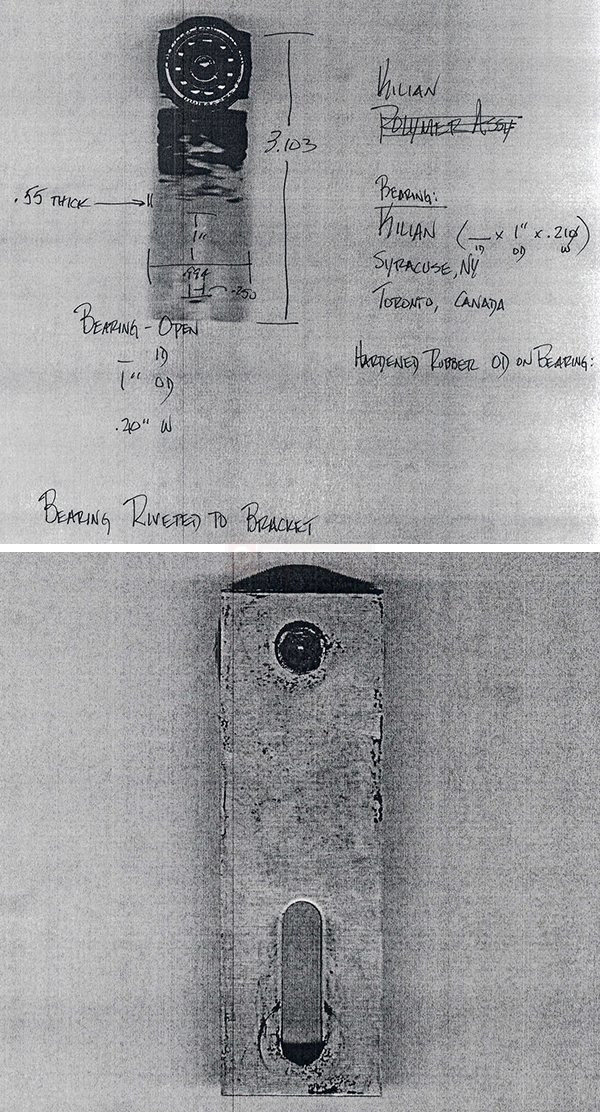 KILIAN
POLYMER ASSY
3.103
.55 THICK
1"
.994
.250
BEARING:
KILIAN (__ x 1" x .210)
ID OD W
SYRACUSE, NY
TORONTO, CANADA
BEARING - OPEN
__ ID
1" OD
.20" W
HARDENED RUBBER OD ON BEARING:
BEARING RIVETED TO BRACKET